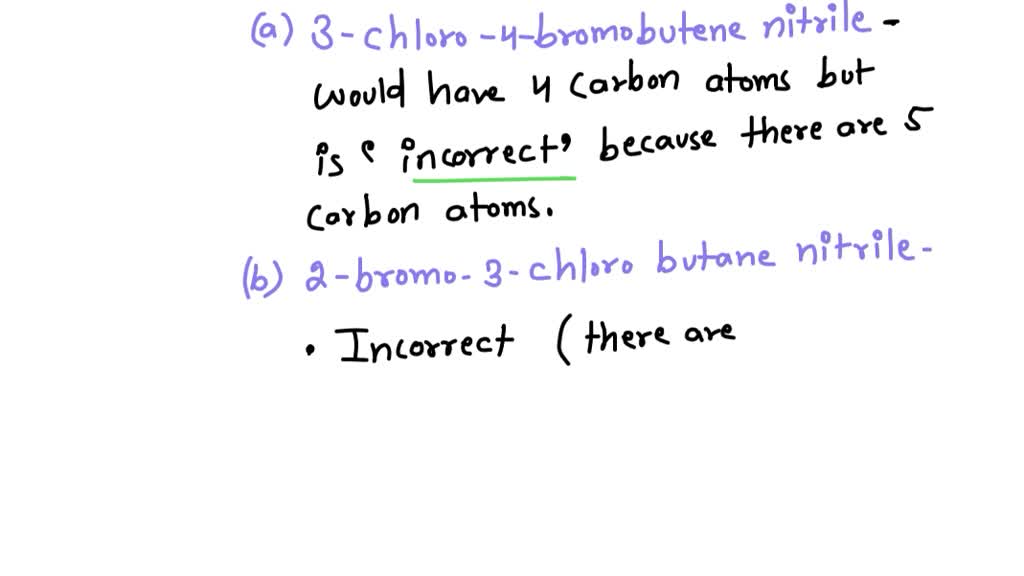 (a) 3-chloro-4-bromobutene nitrile -
would have 4 carbon atoms but
is ‘incorrect’ because there are 5
carbon atoms.
(b) 2-bromo-3-chloro butane nitrile -
• Incorrect (there are